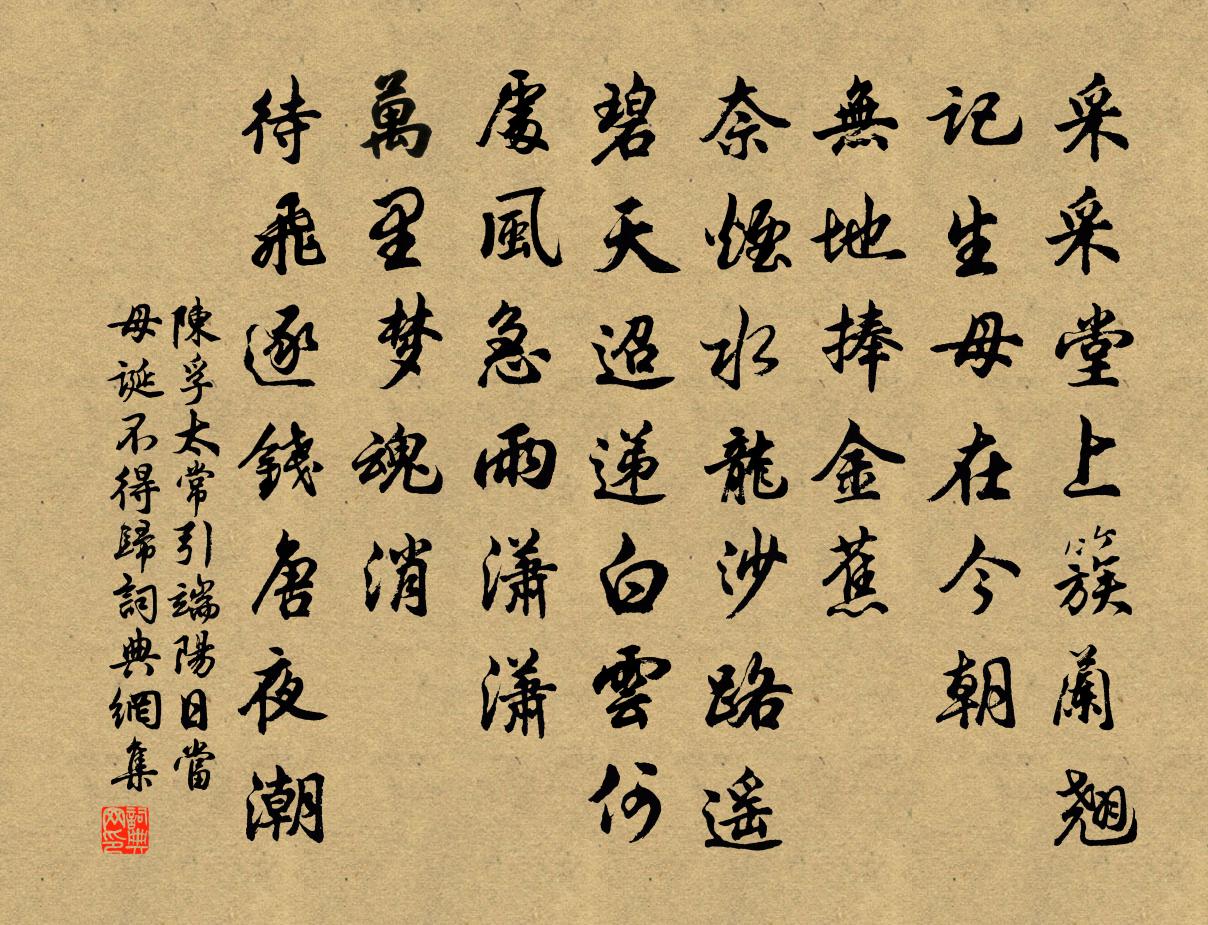 采采堂上簇蘭翘
記生母在今朝
無地捧金蕉
奈煙水龍沙路遥
碧天迢递白雲何
處風急雨瀟瀟
萬里梦魂消
待飛逐錢唐夜潮
陳孚太常引端陽日當
母誕不得歸詞典網集
詞典網印